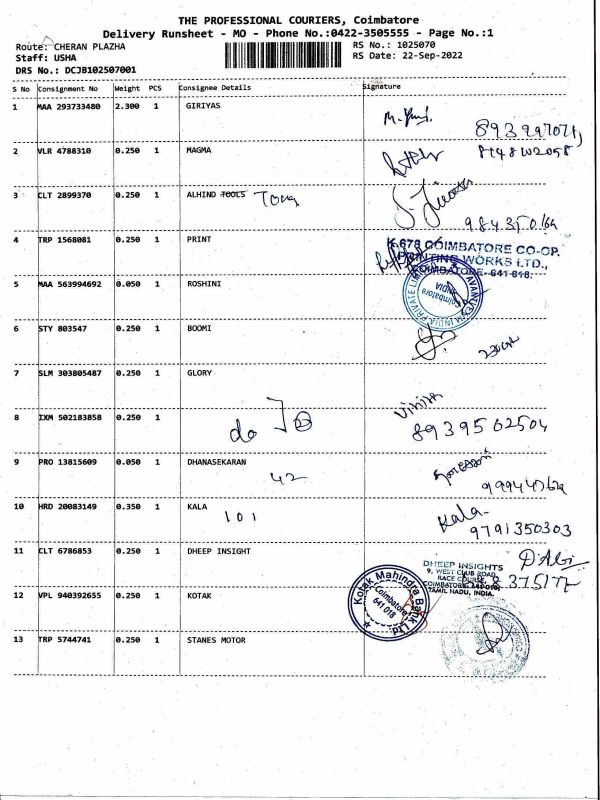 THE PROFESSIONAL COURIERS, Coimbatore
Delivery Runsheet - MO - Phone No.:0422-3505555 - Page No.:1
Route: CHERAN PLAZHA RS No.: 1025070
Staff: USHA RS Date: 22-Sep-2022
DRS No.: DCJB102507001
S No Consignment No Weight PCS Consignee Details Signature
1 MAA 293733480 2.300 1 GIRIYAS
2 VLR 4788310 0.250 1 MAGMA
3 CLT 2899370 0.250 1 ALHIND TOOLS
4 TRP 1568081 0.250 1 PRINT
K.678 COIMBATORE CO-OP.
PRINTING WORKS LTD.,
COIMBATORE- 641 018.
5 MAA 563994692 0.050 1 ROSHINI
Coimbatore
INDIA
6 STY 803547 0.250 1 BOOMI
7 SLM 303805487 0.250 1 GLORY
8 IXM 502183858 0.250 1 do
8939562504
9 PRO 13815609 0.050 1 DHANASEKARAN 42
10 HRD 20083149 0.350 1 KALA 101 Kala
9791350303
11 CLT 6786853 0.250 1 DHEEP INSIGHT
DHEEP INSIGHTS
9, WEST CLUB ROAD,
RACE COURSE,
COIMBATORE
TAMIL NADU, INDIA.
12 VPL 940392655 0.250 1 KOTAK
Kotak Mahindra Bank Ltd
Coimbatore
641 018
13 TRP 5744741 0.250 1 STANES MOTOR